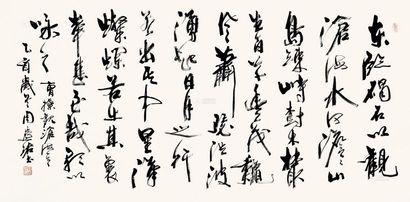 东临碣石以观
沧海水何澹澹山
岛竦峙树木丛
生百草丰茂秋
风萧瑟洪波
涌起日月之行
若出其中星汉
灿烂若出其里
幸甚至哉歌以
咏志 曹操观沧海
乙酉岁冬周